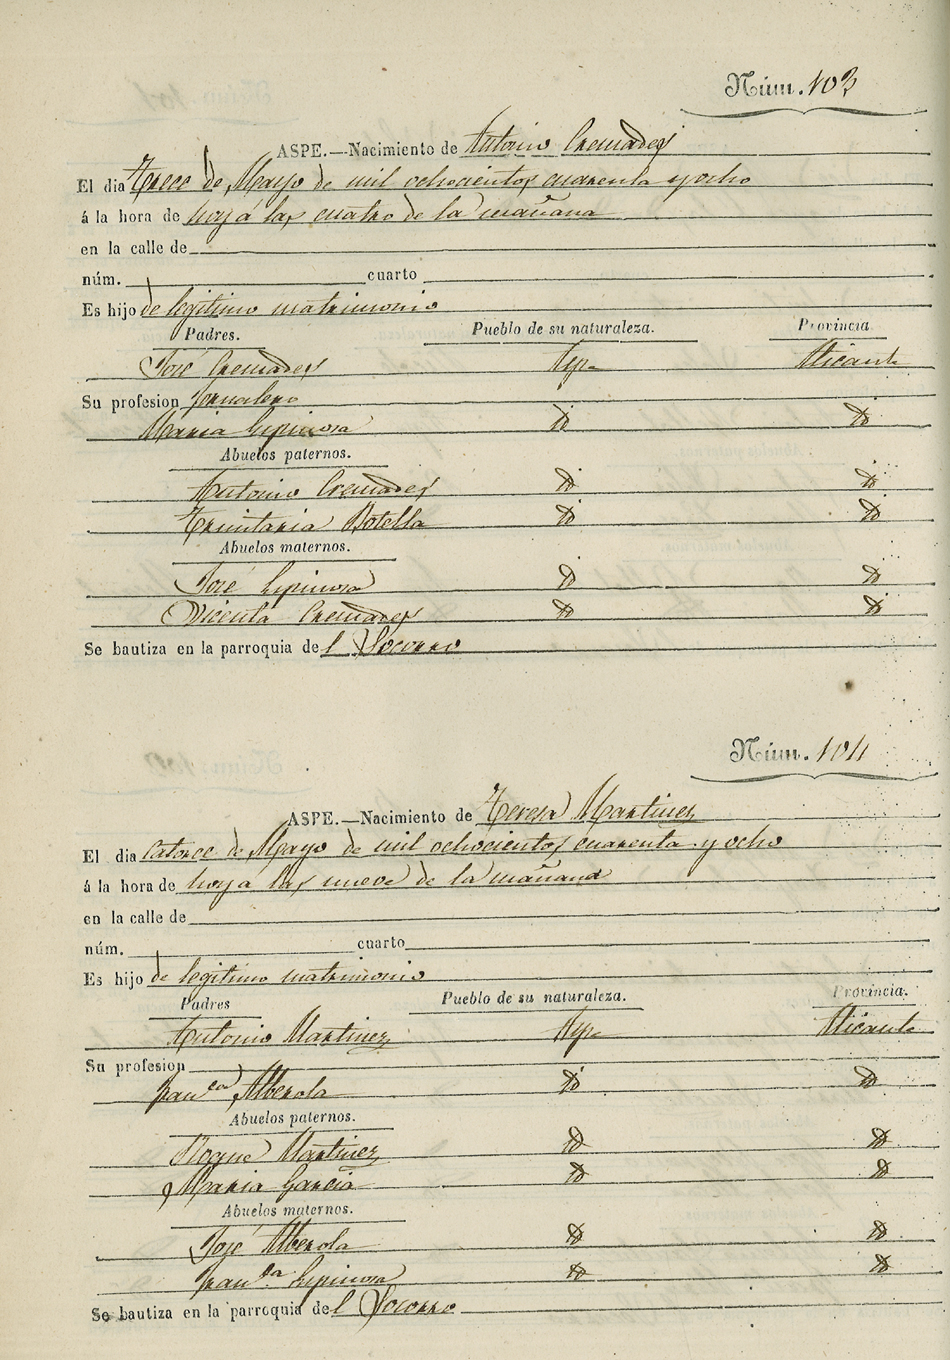 Núm. 103
ASPE.—Nacimiento de Antonio Cremades
El dia Trece de Mayo de mil ochocientos cuarenta y ocho
á la hora de hoy á las cuatro de la mañana
en la calle de
núm. cuarto
Es hijo de legitimo matrimonio
Padres. Pueblo de su naturaleza. Provincia
José Cremades Aspe Alicante
Su profesion Jornalero
Maria Espinosa id id
Abuelos paternos.
Antonio Cremades id id
Trinitaria Botella id id
Abuelos maternos.
José Espinosa id id
Vicenta Cremades id id
Se bautiza en la parroquia del Socorro
Núm. 104
ASPE.—Nacimiento de Teresa Martinez
El dia catorce de Mayo de mil ochocientos cuarenta y ocho
á la hora de hoy á las nueve de la mañana
en la calle de
núm. cuarto
Es hijo de legitimo matrimonio
Padres Pueblo de su naturaleza. Provincia.
Antonio Martinez Aspe Alicante
Su profesion
Franca Alberola id id
Abuelos paternos.
Roque Martinez id id
Maria Garcia id id
Abuelos maternos.
José Alberola id id
Franca Espinosa id id
Se bautiza en la parroquia del Socorro